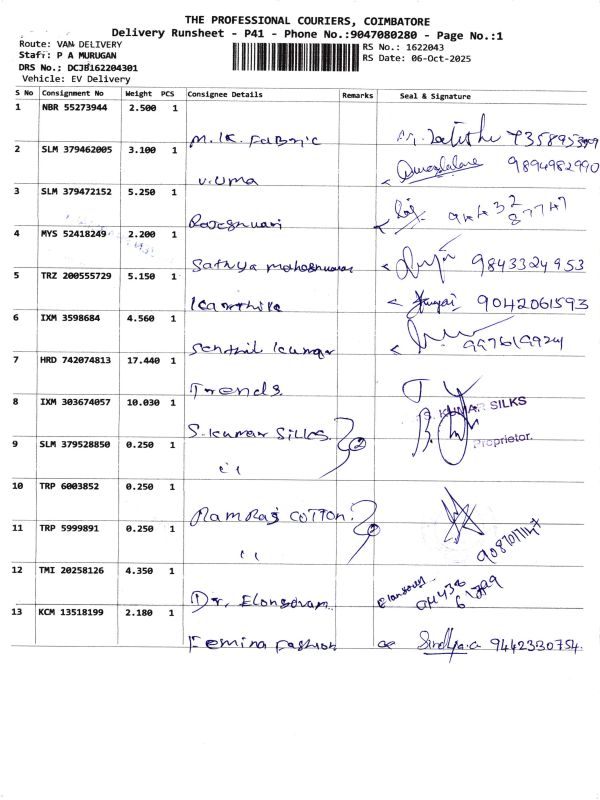 THE PROFESSIONAL COURIERS, COIMBATORE
Delivery Runsheet - P41 - Phone No.:9047080280 - Page No.:1
Route: VAN DELIVERY
RS No.: 1622043
Staff: P A MURUGAN
RS Date: 06-Oct-2025
DRS No.: DCJB162204301
Vehicle: EV Delivery
S No Consignment No Weight PCS Consignee Details Remarks Seal & Signature
1 NBR 55273944 2.500 1 M.K. Fabric
2 SLM 379462005 3.100 1 V.Uma 9894982990
3 SLM 379472152 5.250 1
4 MYS 52418249 2.200 1 Sathya 9843324953
5 TRZ 200555729 5.150 1 Karthika 9042061593
6 IXM 3598684 4.560 1 Senthil Kumar
7 HRD 742074813 17.440 1 Trends
8 IXM 303674057 10.030 1 S.Kumar Silks 2 KUMAR SILKS
Proprietor.
9 SLM 379528850 0.250 1 ''
10 TRP 6003852 0.250 1 Ramraj COTTON 2
11 TRP 5999891 0.250 1 ''
12 TMI 20258126 4.350 1 Dr.
13 KCM 13518199 2.180 1 Femina Fashion 9442330754